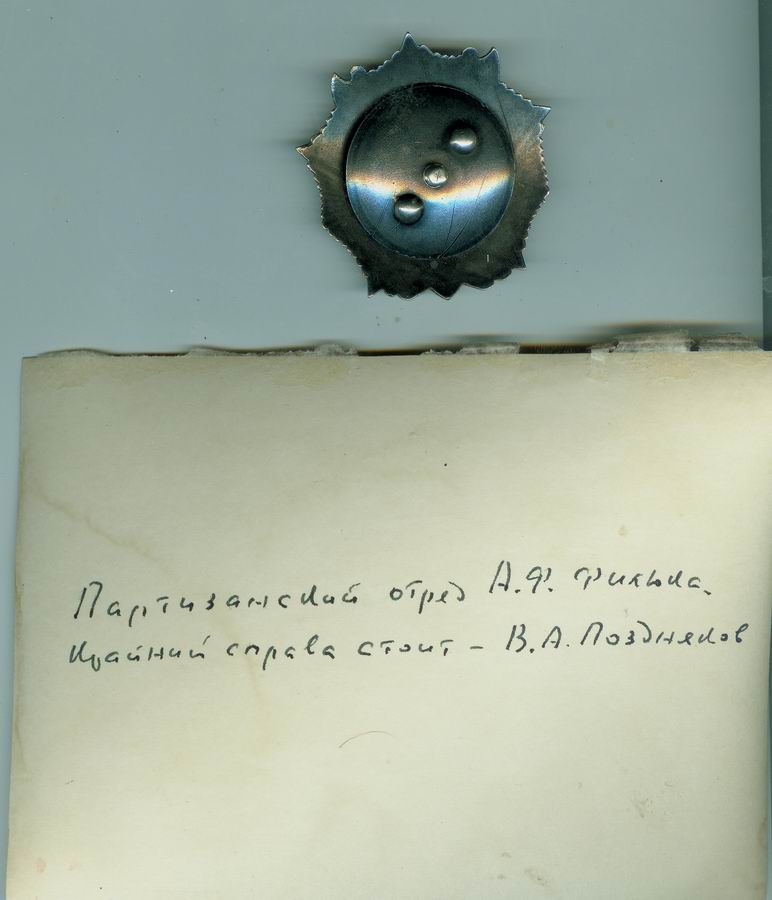 Партизанский отряд А.Ф. Филька.
Крайний справа стоит – В.А. Поздняков